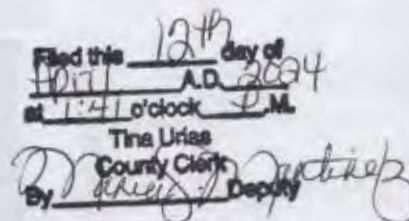 Filed this 12th day of
April A.D. 2024
at 1:41 o'clock P.M.
Tina Urias
County Clerk
By Deputy